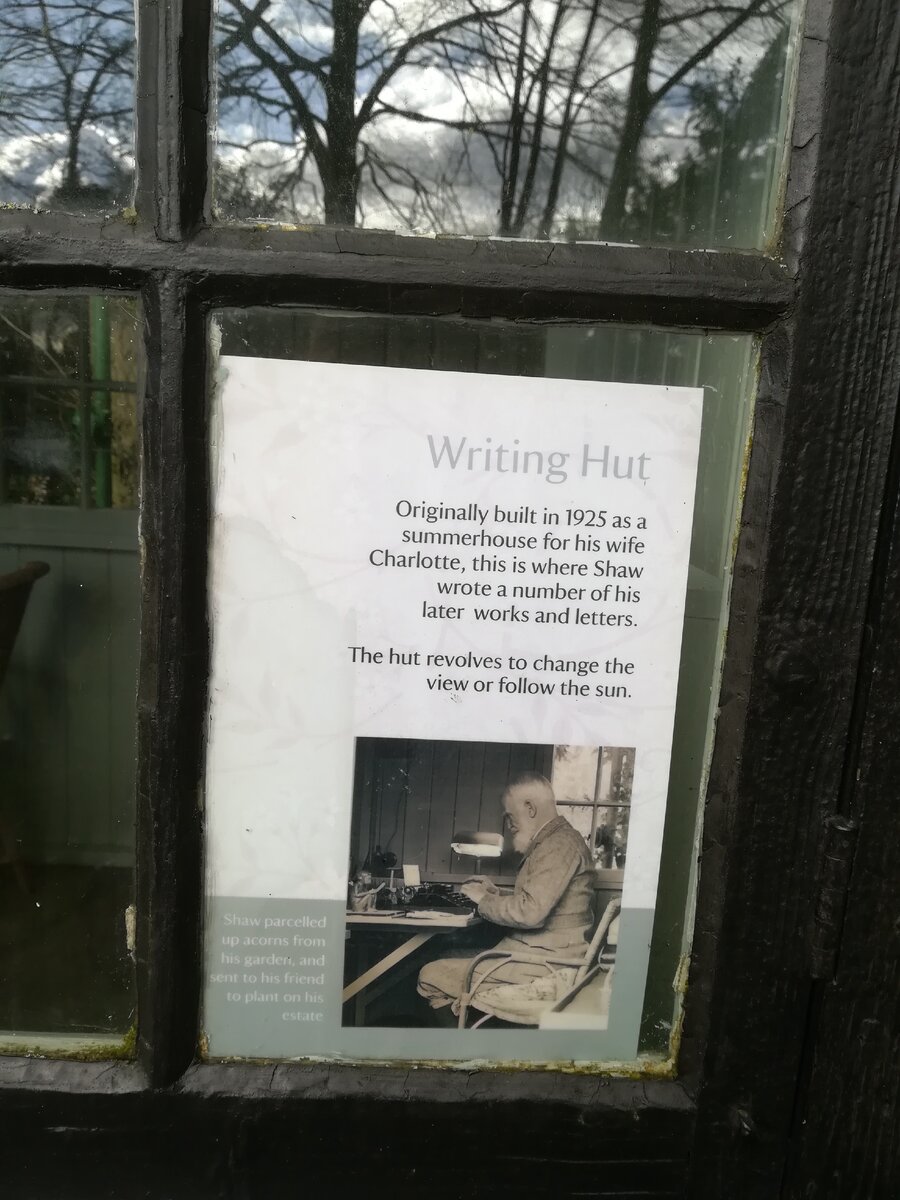 Writing Hut
Originally built in 1925 as a
summerhouse for his wife
Charlotte, this is where Shaw
wrote a number of his
later works and letters.
The hut revolves to change the
view or follow the sun.
Shaw parcelled
up acorns from
his garden, and
sent to his friend
to plant on his
estate